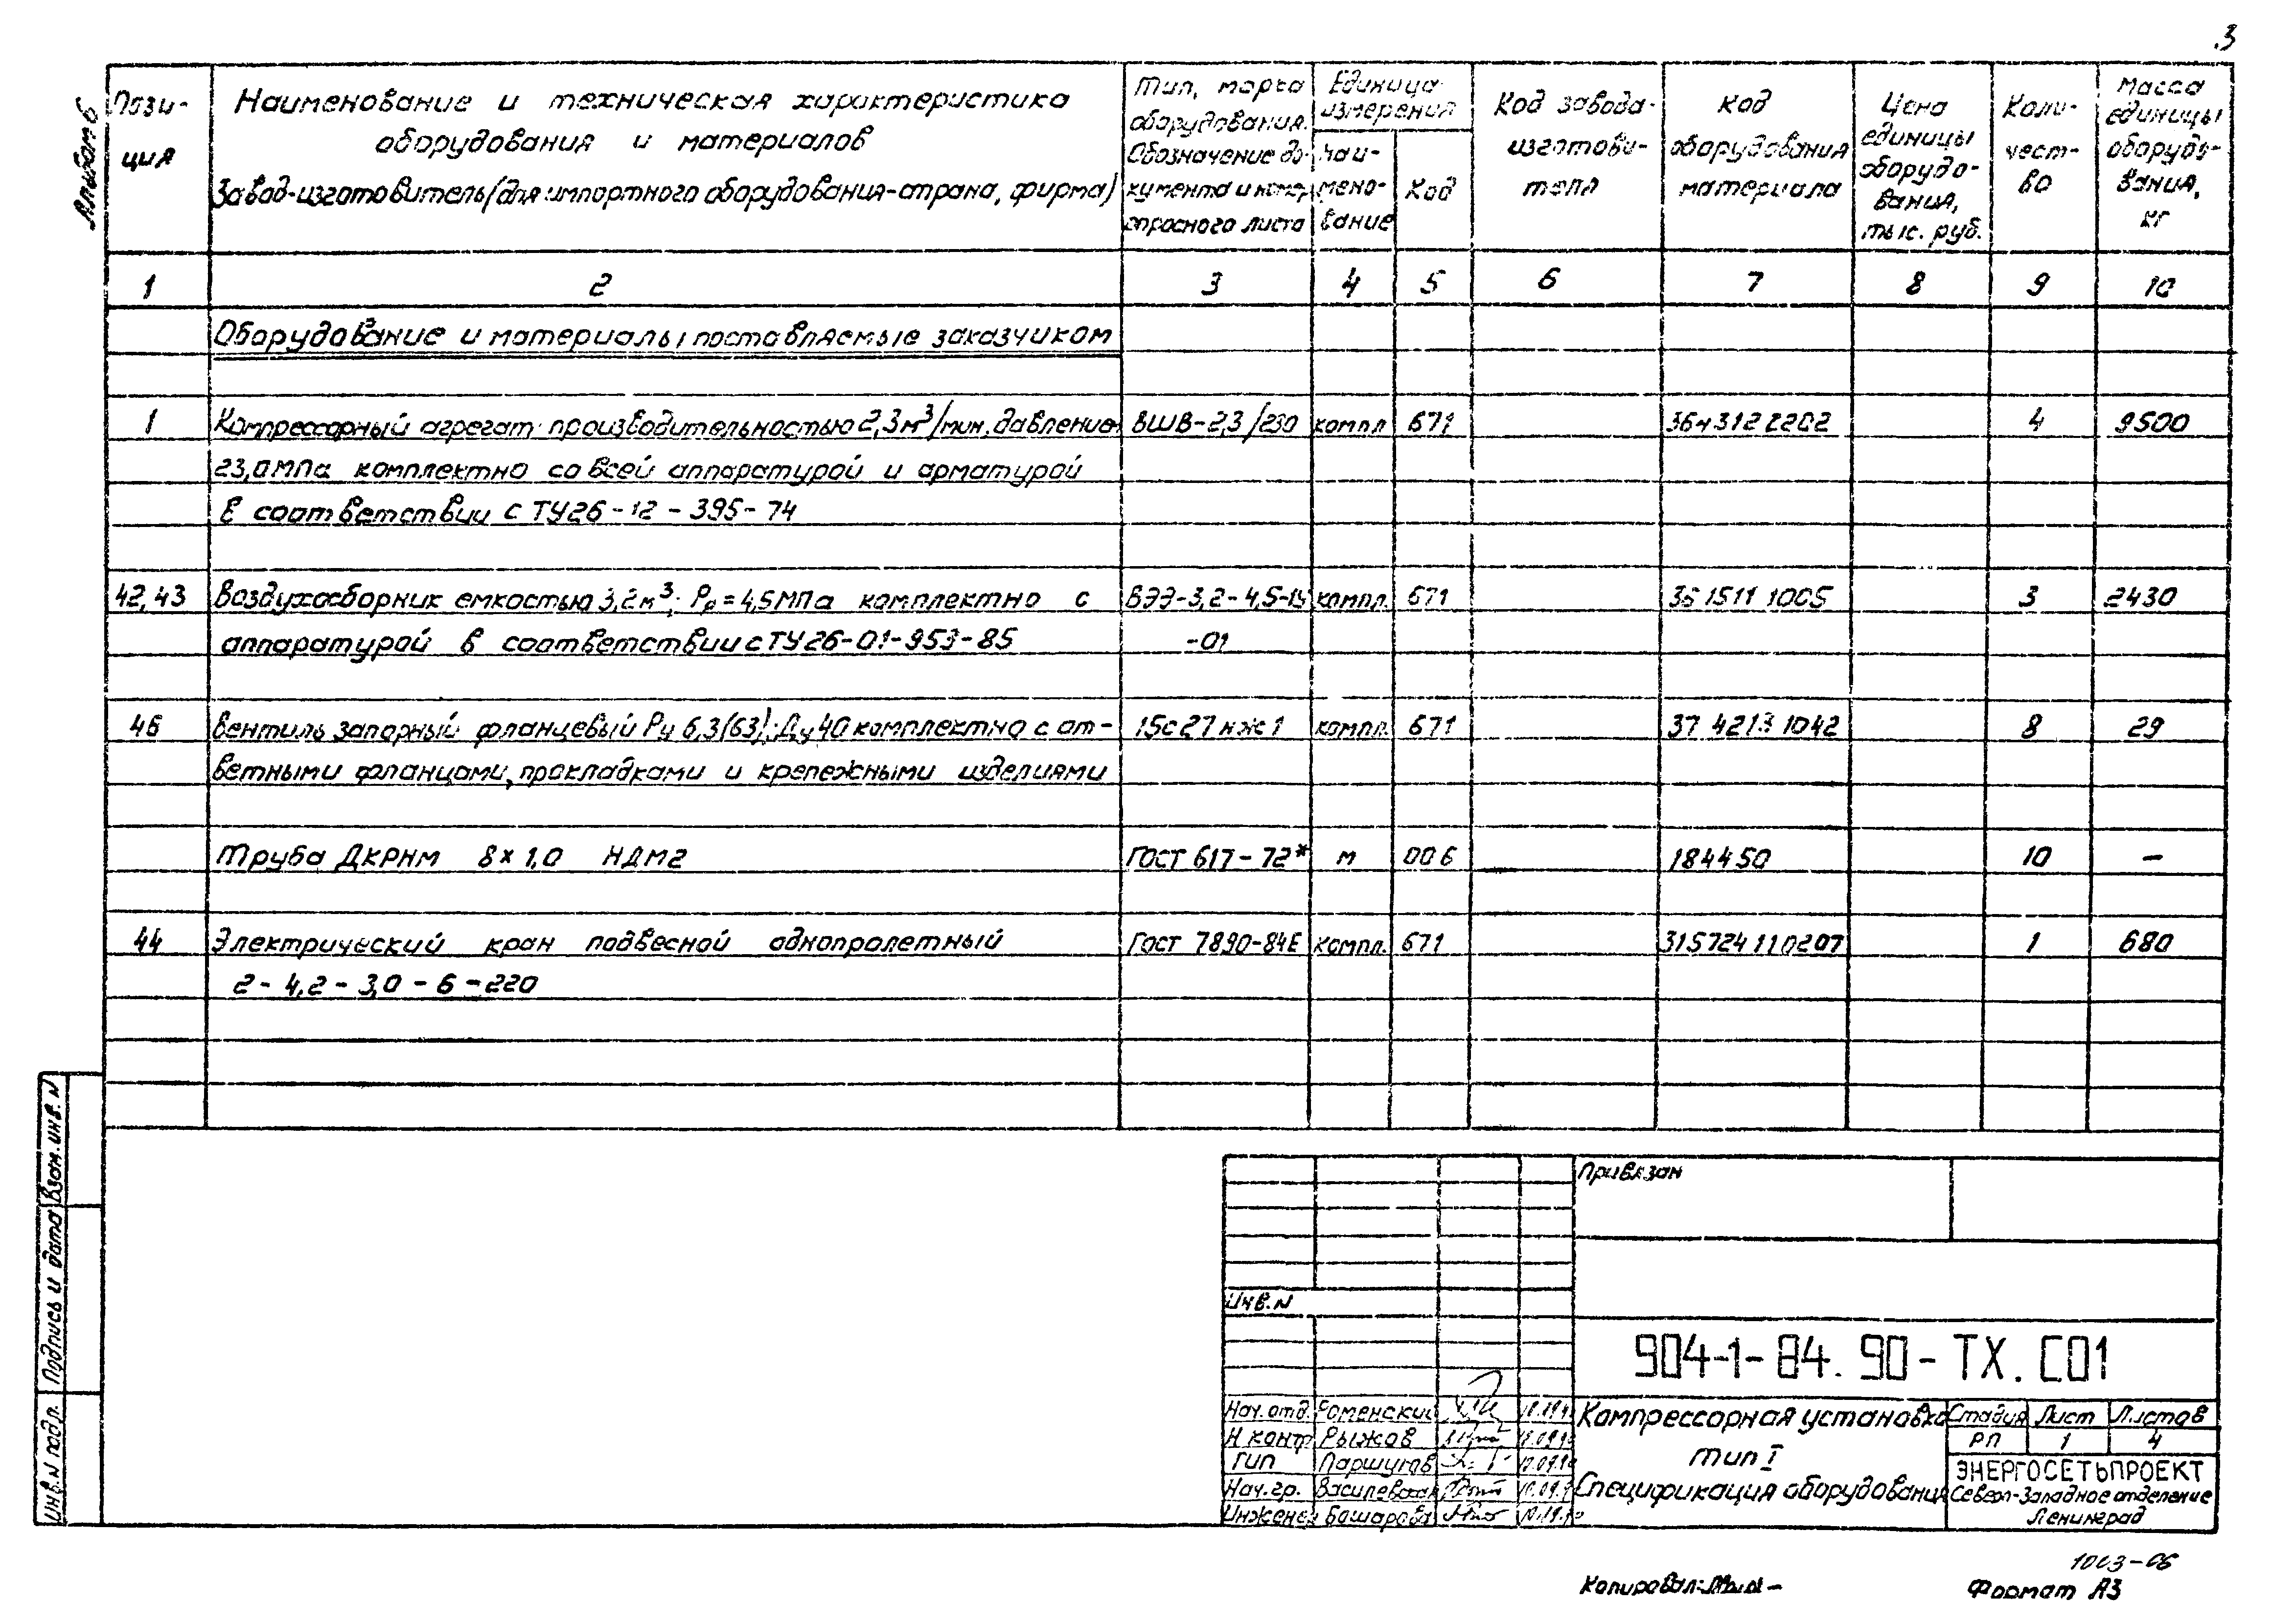 3
Альбом 6
Пози-
ция
Наименование и техническая характеристика
оборудования и материалов
Завод-изготовитель (для импортного оборудования-страна, фирма)
Тип, марка
оборудования.
Обозначение до-
кумента и номер
опросного листа
Единица
измерения
Наи-
мено-
вание
Код
Код завода-
изготови-
теля
Код
оборудования
материала
Цена
единицы
оборудо-
вания,
тыс. руб.
Коли-
чест-
во
Масса
единицы
оборудо-
вания,
кг
1 2 3 4 5 6 7 8 9 10
Оборудование и материалы поставляемые заказчиком
1 Компрессорный агрегат производительностью 2,3 м³/мин, давление ВШВ-2,3/230 компл 671 4 9500
23,0 МПа комплектно со всей аппаратурой и арматурой
в соответствии с ТУ26-12-395-74
42,43 Воздухосборник емкостью 3,2 м³; Рр=4,5 МПа комплектно с ВЭЭ-3,2-4,5- компл. 671 36 1511 1005 3 2430
аппаратурой в соответствии с ТУ26-01-953-85 -01
46 Вентиль запорный фланцевый Ру 6,3(63); Ду 40 комплектно с от- 15с27нж1 компл. 671 37 4213 1042 8 29
ветными фланцами, прокладками и крепежными изделиями
Труба ДКРНМ 8×1,0 НДМ2 ГОСТ 617-72* м 006 184450 10 —
44 Электрический кран подвесной однопролетный ГОСТ 7890-84Е компл. 671 315724110207 1 680
2-4,2-3,0-6-220
Взам. инв. N
Подпись и дата
Инв. N подл.
Привязан
Инв. N
904-1-84.90-ТХ.СО1
Нач. отд. Роменский
Н контр Рыжов
ГИП Паршугов
Нач. гр.
Инженер Башарова
Компрессорная установка
тип I
Спецификация оборудования
Стадия Лист Листов
РП 1 4
ЭНЕРГОСЕТЬПРОЕКТ
Северо-Западное отделение
Ленинград
Копировал:
Формат А3